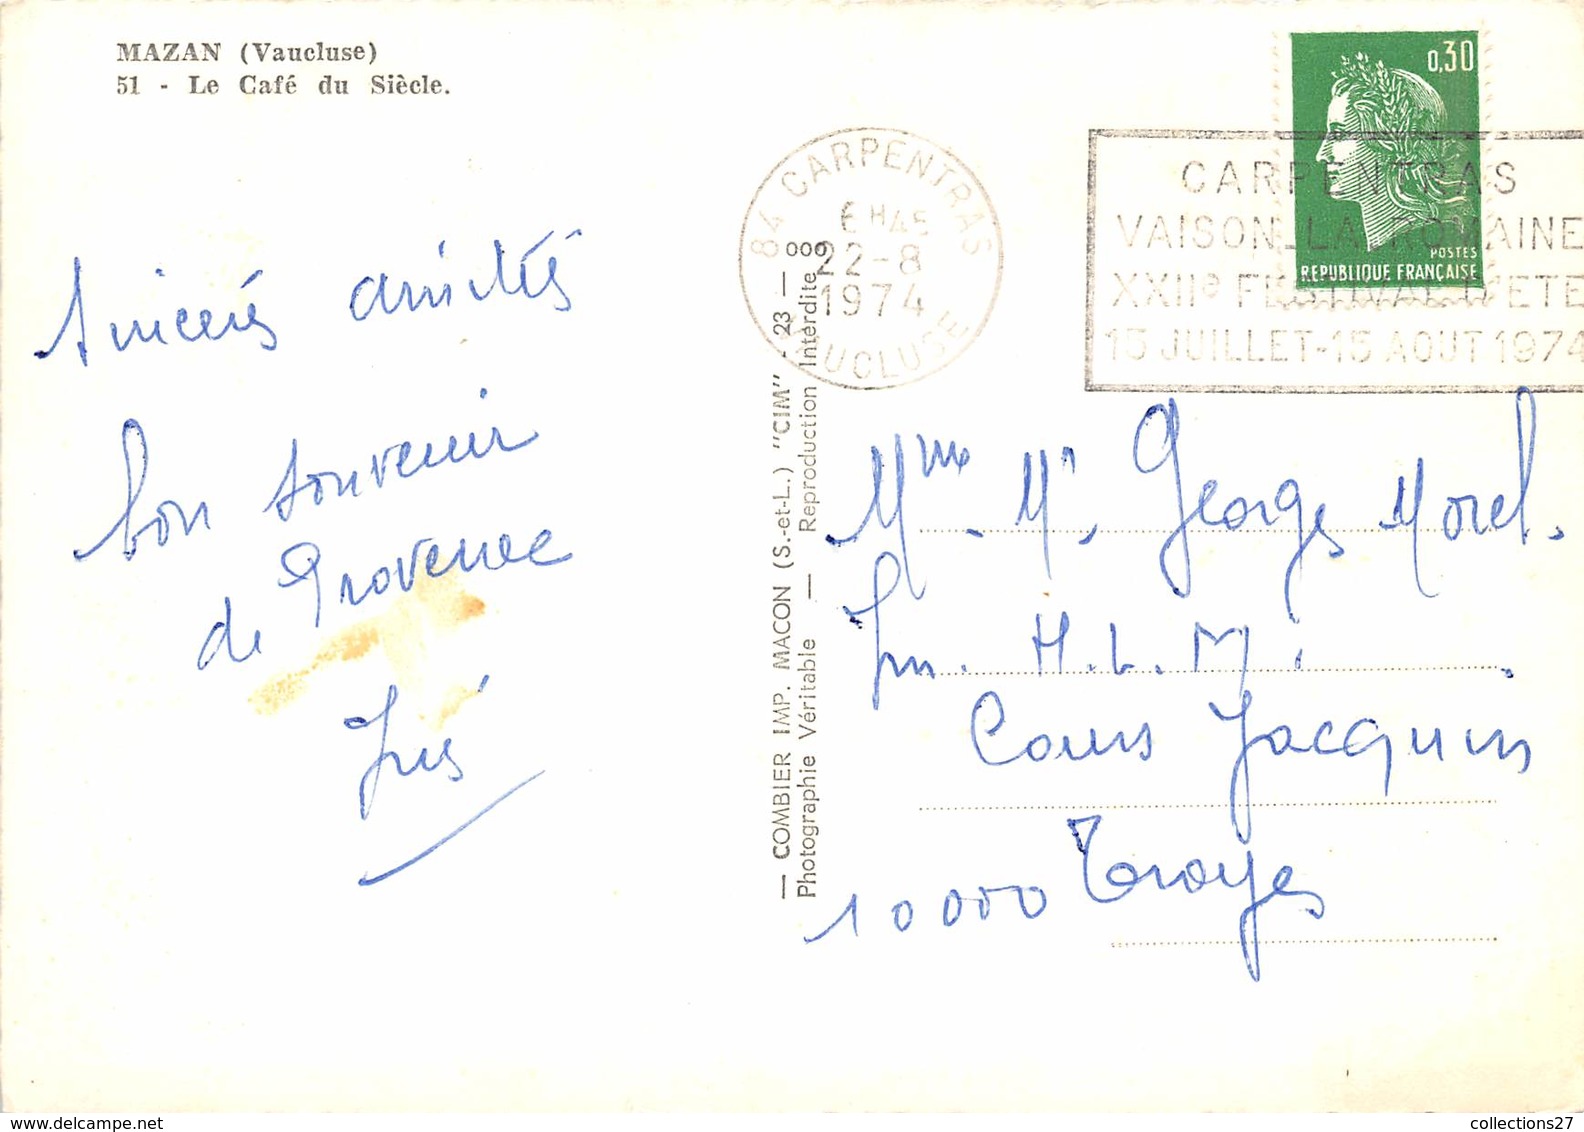 MAZAN (Vaucluse)
51 - Le Café du Siècle.
Sincerés amitiés
bon souvenir
de Provence
84 CARPENTRAS
6H45
22-8
1974
VAUCLUSE
CARPENTRAS
VAISON_LA_ROMAINE
XXIIe FESTIVAL D'ETE
15 JUILLET-15 AOUT 1974
0,30
POSTES
REPUBLIQUE FRANÇAISE
— COMBIER IMP. MACON (S.-et-L.) "CIM" - 23 — 009
Photographie Véritable — Reproduction Interdite
Mme. Mr. Georges Morel.
Im. H.L.M.
Cours Jacquin
10000 Troyes
collections27